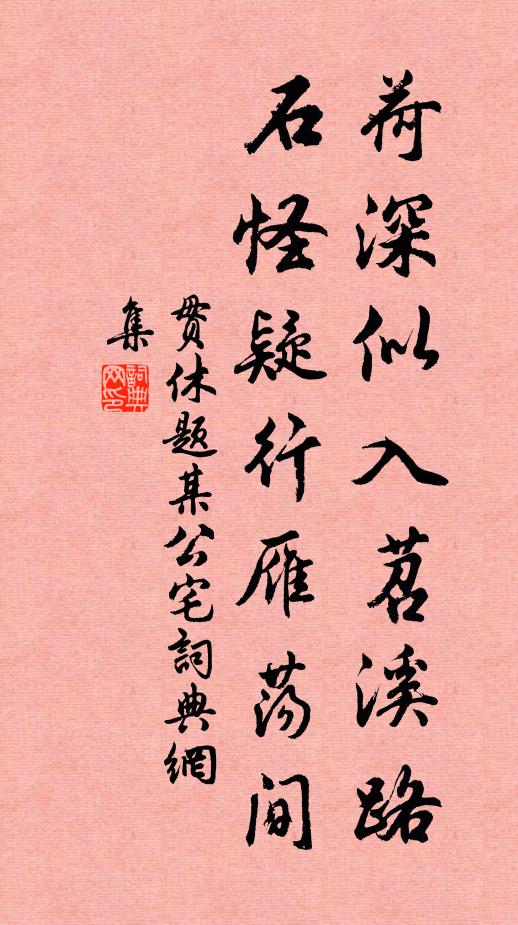 荷深似入苕溪路
石怪疑行雁荡间
贯休题某公宅詞典網
集
詞典网印